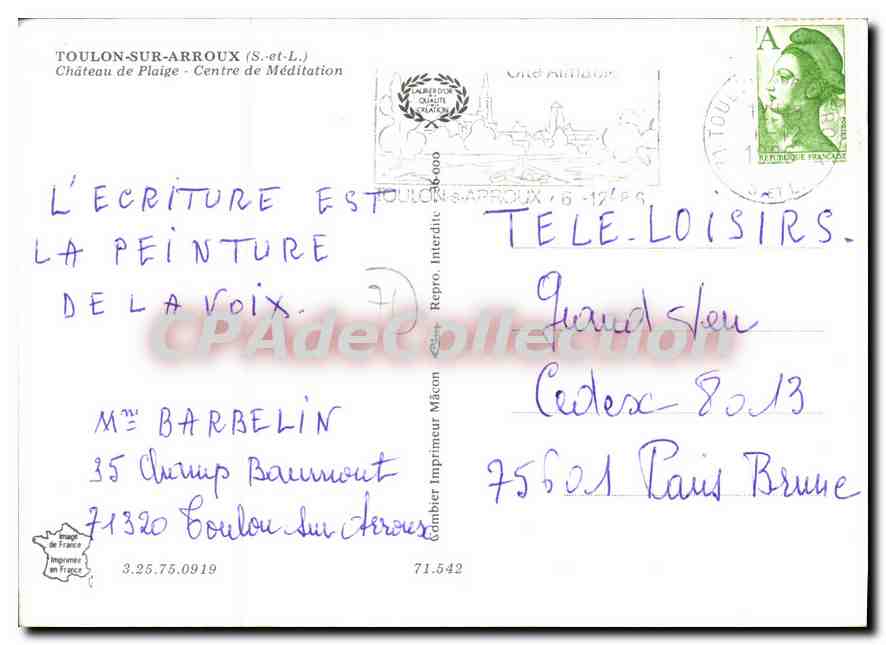 TOULON-SUR-ARROUX (S.-et-L.)
Château de Plaige - Centre de Méditation
LAURIER D'OR
QUALITÉ
CRÉATION
TOULON-S-ARROUX
A
RÉPUBLIQUE FRANÇAISE
L'ECRITURE EST
LA PEINTURE
DE LA VOIX.
71
Mme BARBELIN
35 Champ Baumont
71320 Toulon sur Arroux
TELE-LOISIRS.
Grand Jeu
Cedex 8013
75601 Paris Brune
Combier Imprimeur Mâcon
Repro. Interdite
Image
de France
Imprimée
en France
3.25.75.0919
71.542
CPAdeCollection